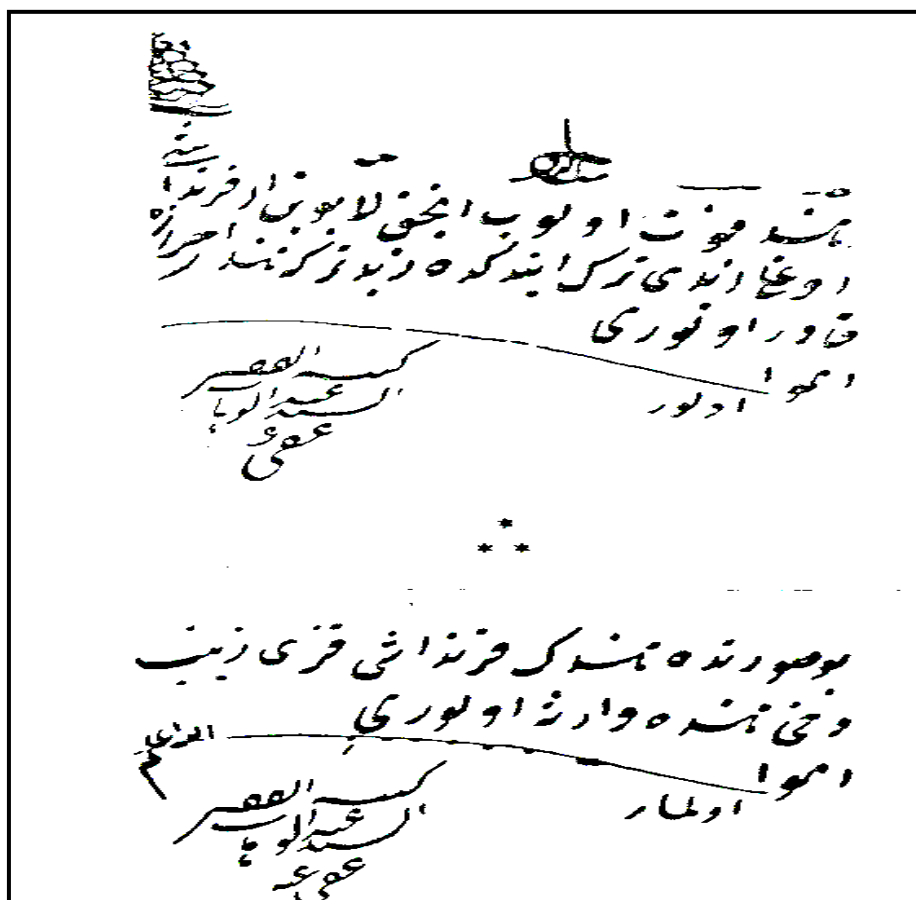 هند فوت اولوب انجق لابوین ار قرنداشی
اوغلی زیدی ترک ایتدکده زید ترکۀ هندی احرازه
قادر اولورمی
الجواب
اولور
کتبه الفقیر
السید عبد الوهاب
عفی عنه
* * *
بو صورتده هندک قرنداشی قزی زینب
دخی هنده وارثه اولورمی
الجواب الله اعلم
اولماز
کتبه الفقیر
السید عبد الوهاب
عفی عنه